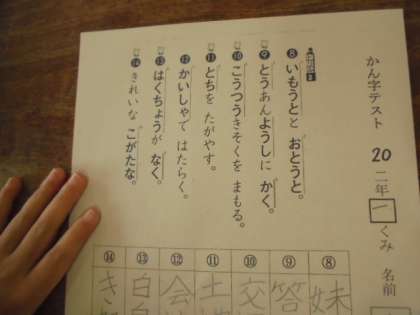 かん字テスト 20 二年 一 くみ 名前
⑧ いもうとと おとうと。
⑨ とうあんようしに かく。
⑩ こうつうきそくを まもる。
⑪ とちを たがやす。
⑫ かいしゃで はたらく。
⑬ はくちょうが なく。
⑭ きれいな こがたな。
⑧ 妹
⑨ 答
⑩ 交
⑪ 土
⑫ 会
⑬ 白
⑭ き